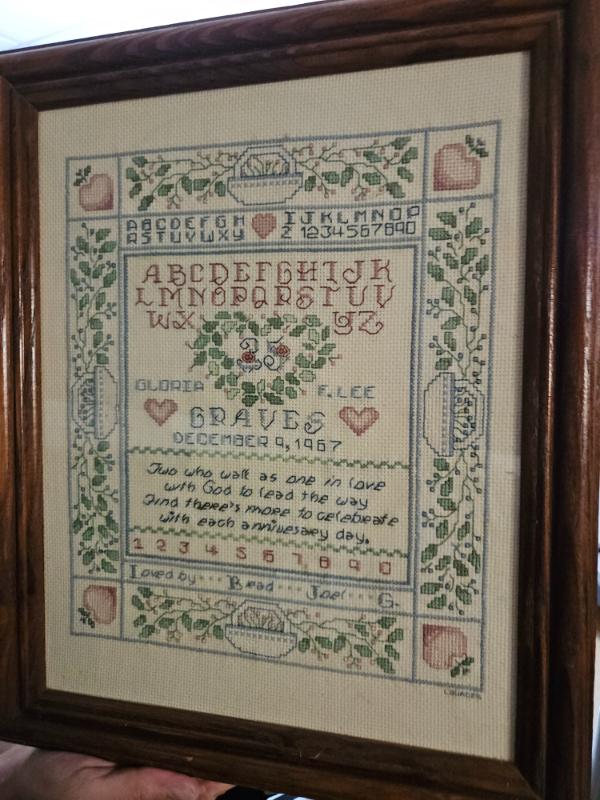 ABCDEFGH IJKLMNOP
RSTUVWXY Z 1234567890
ABCDEFGHIJK
LMNOPQRSTUV
WX YZ
25
GLORIA F. LEE
GRAVES
DECEMBER 9, 1967
Two who walk as one in love
with God to lead the way
Find there's more to celebreate
with each anniuesary day.
1 2 3 4 5 6 7 8 9 0
Loved by Brad Joel G.